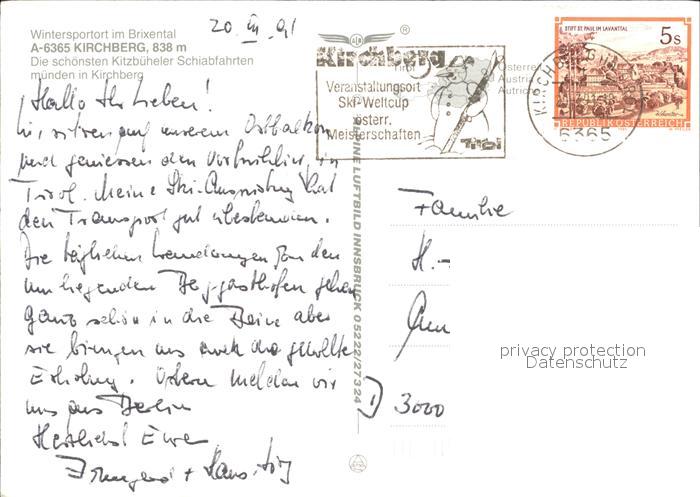 20. III. 91
Wintersportort im Brixental
A-6365 KIRCHBERG, 838 m
Die schönsten Kitzbüheler Schiabfahrten
münden in Kirchberg
Hallo Ihr Lieben!
Wir sitzen auf unserem Ostbalkon
und geniessen den Vorfrühling in
Tirol. Meine Ski-Ausrüstung hat
den Transport gut überstanden.
Die täglichen Wanderungen zu den
umliegenden Berggasthöfen gehen
ganz schön in die Beine aber
sie bringen uns auch die gewollte
Erholung. Ostern melden wir
uns aus Berlin
Herzlichst Eure
Irmgard + Hans-
Kirchberg
Tirol
Veranstaltungsort
Ski-Weltcup
österr.
Meisterschaften
Tirol
Österreich
Austria
Autriche
STIFT ST. PAUL IM LAVANTTAL
5 S
REPUBLIK ÖSTERREICH
KIRCHBERG
6365
ALPINE LUFTBILD INNSBRUCK 05222/27324
Familie
H.-
3000
privacy protection
Datenschutz